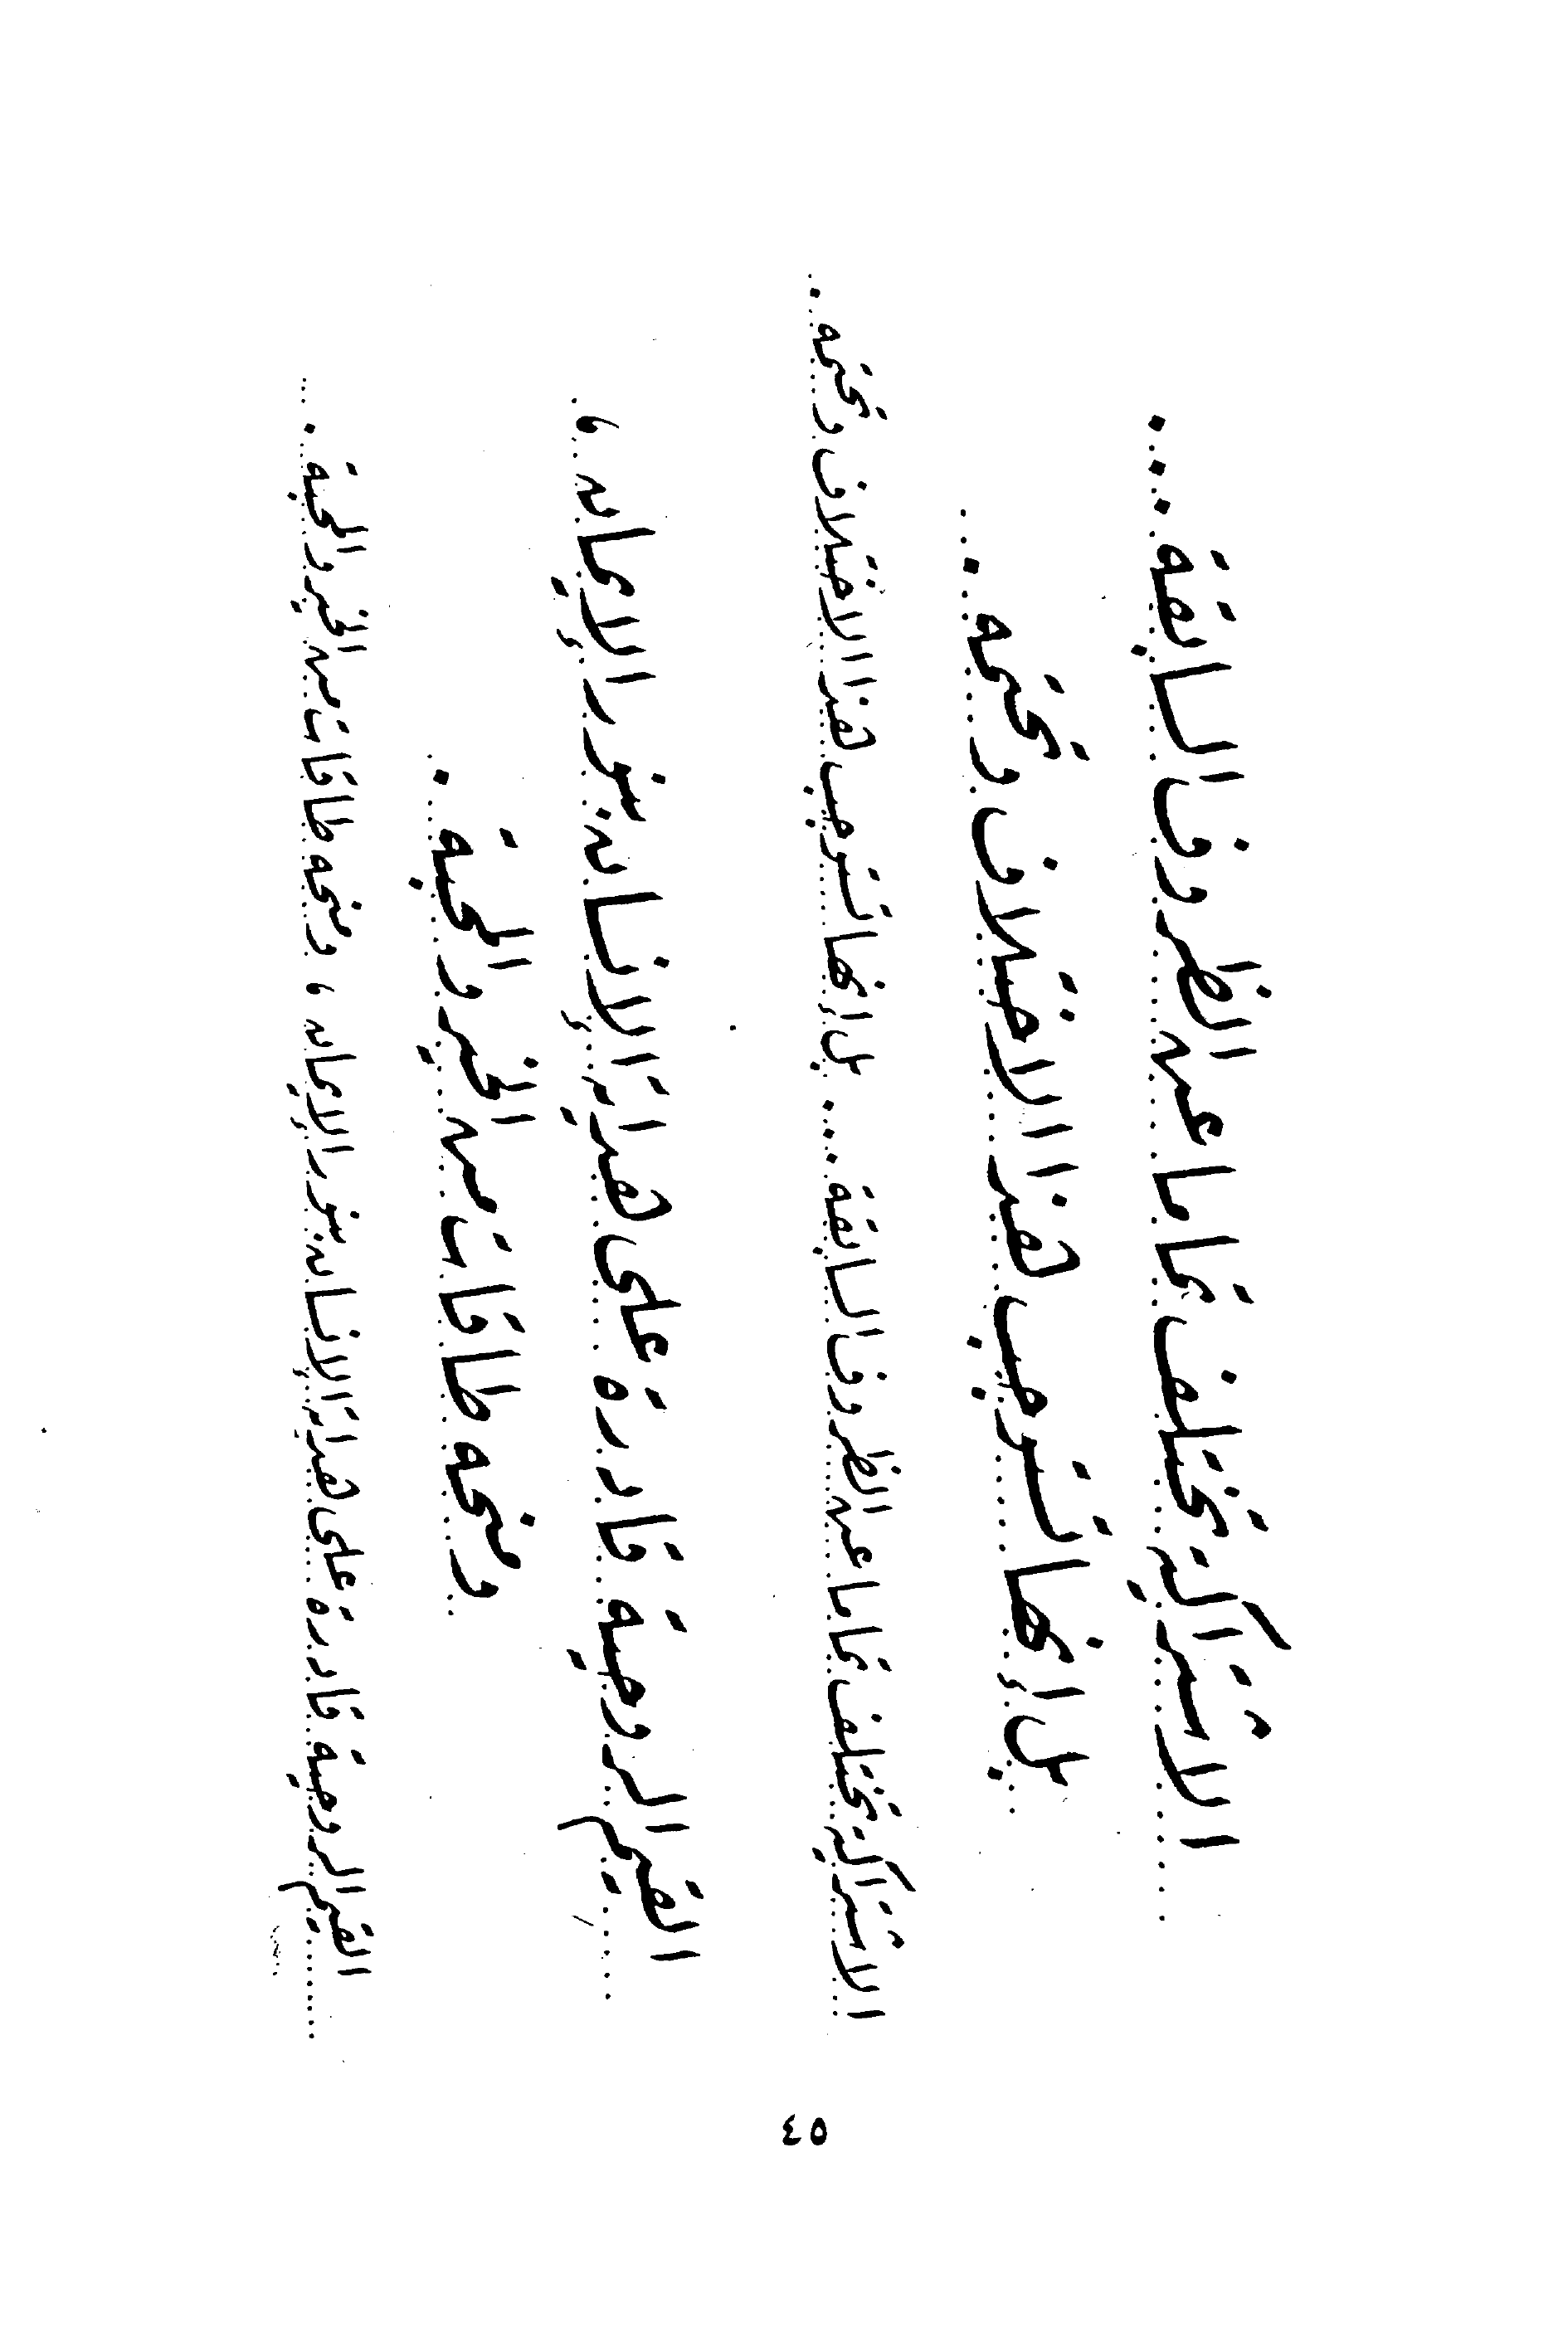 الاشتراكية تختلف تماما عن الظروف السابقة ...
بل إنها تستوجب هذا الاختلاف وتحتمه ..
الاشتراكية تختلف تماما عن الظروف السابقة ... بل إنها تستوجب هذا الاختلاف وتحتمه ..
القيم الروحية قادرة على هداية الإنسان بنور الإيمان ،
ومنحه طاقات من الخير والمحبة .
القيم الروحية قادرة على هداية الإنسان بنور الإيمان ، ومنحه طاقات من الخير والمحبة .
٤٥